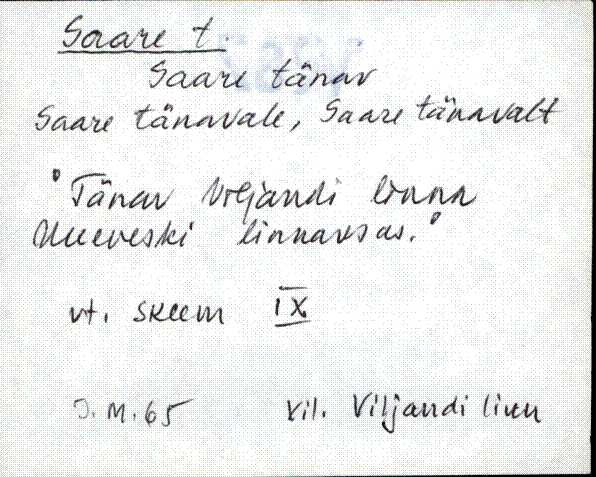 Saare t.
Saare tänav
Saare tänavale, Saare tänavalt
"Tänav Viljandi linna
Uueveski linnaosas."
vt. skeem IX
J. M. 65 Vil. Viljandi linn